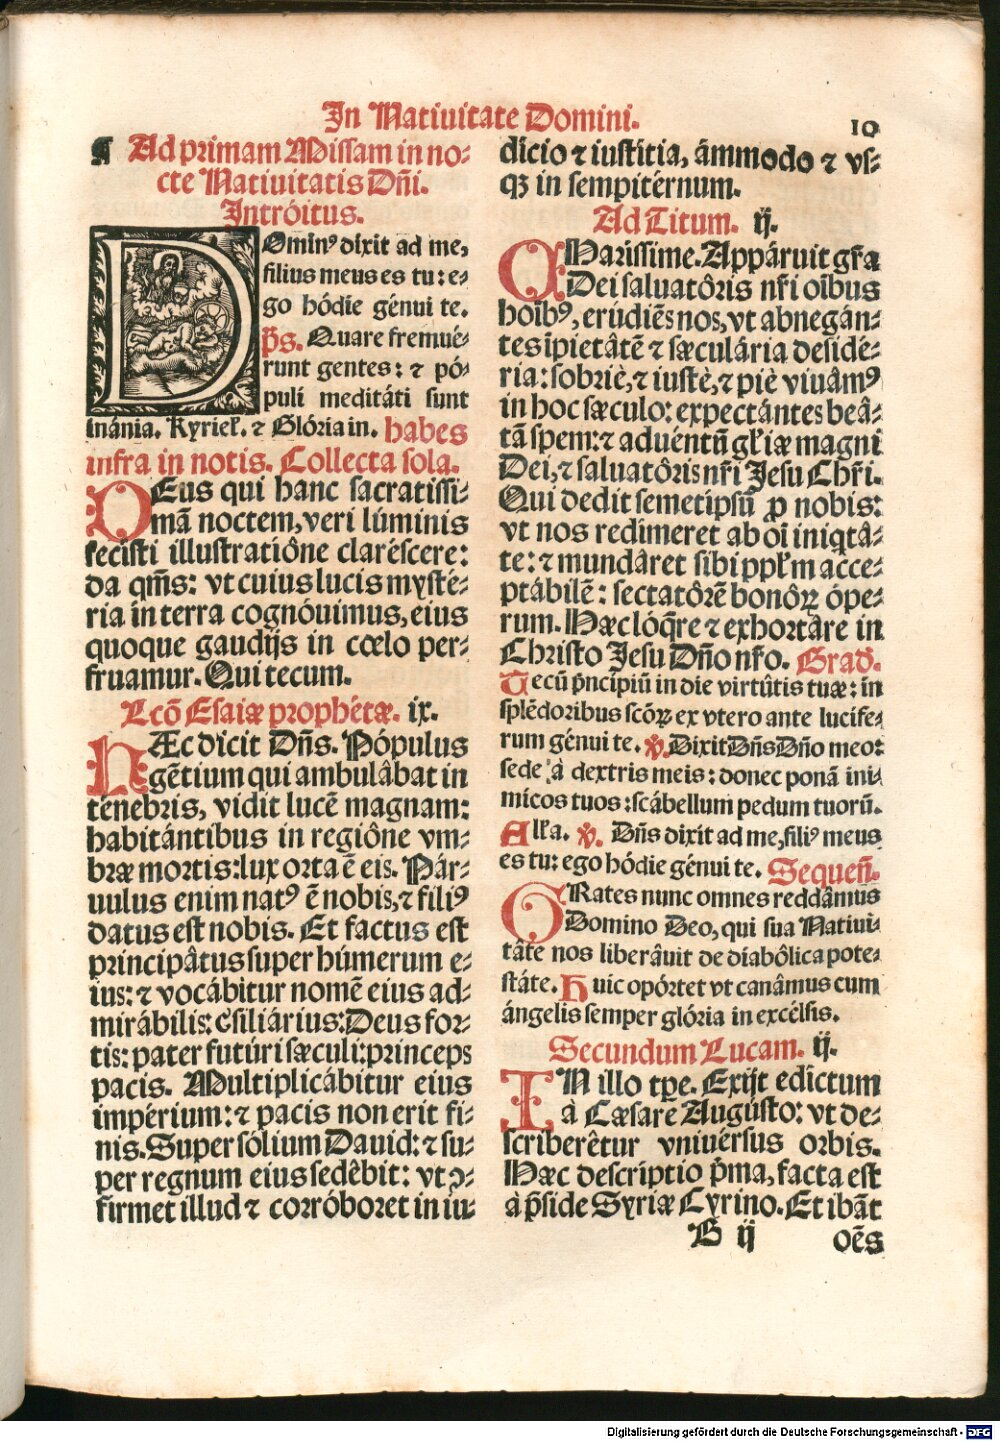 In Natiuitate Domini.
10
¶ Ad primam Missam in no-
cte Natiuitatis Dñi.
Intróitus.
DOminꝰ dixit ad me,
filius meus es tu: e-
go hódie génui te.
p̃s. Quare fremué-
runt gentes: ⁊ pó-
puli meditáti sunt
inánia. Kyrieł. ⁊ Glória in. habes
infra in notis. Collecta sola.
DEus qui hanc sacratissi-
mã noctem, veri lúminis
fecisti illustratiône claréscere:
da qm̃s: vt cuius lucis mysté-
ria in terra cognóuimus, eius
quoque gaudijs in cœlo per-
fruamur. Qui tecum.
Lcõ Esaiæ prophétæ. ix.
HÆc dicit Dñs. Pópulus
gẽtium qui ambulâbat in
tenebris, vidit lucẽ magnam:
habitántibus in regiône vm-
bræ mortis: lux orta ẽ eis. Pár-
uulus enim natꝰ ẽ nobis, ⁊ filiꝰ
datus est nobis. Et factus est
principâtus super húmerum e-
ius: ⁊ vocábitur nomẽ eius ad-
mirábilis: cõsiliárius: Deus for-
tis: pater futúri sæculi: princeps
pacis. Multiplicábitur eius
impérium: ⁊ pacis non erit fi-
nis. Super sólium Dauid: ⁊ su-
per regnum eius sedêbit: vt ꝯ-
firmet illud ⁊ corróboret in iu-
dicio ⁊ iustitia, âmmodo ⁊ vs-
qꝫ in sempitérnum.
Ad Titum. ij.
CHaríssime. Appáruit gr̃a
Dei saluatôris nr̃i oĩbus
hoĩbꝰ, erúdiẽs nos, vt abnegán-
tes ĩpietâtẽ ⁊ sæculária desidé-
ria: sobriè, ⁊ iustè, ⁊ piè viuâmꝰ
in hoc sæculo: expectántes beâ-
tã spem: ⁊ aduéntũ gl̃iæ magni
Dei, ⁊ saluatôris nr̃i Jesu Chr̃i.
Qui dedit semetipsũ ꝓ nobis:
vt nos redimeret ab oĩ iniqtâ-
te: ⁊ mundâret sibi ppl̃m acce-
ptábilẽ: sectatôrẽ bonôꝝ ópe-
rum. Hæc lóq̃re ⁊ exhortâre in
Christo Jesu Dño nr̃o. Grad̃.
Tecũ p̃ncipiũ in die virtûtis tuæ: in
splẽdoribus scõꝝ ex vtero ante lucife-
rum génui te. ℣. Dixit Dñs Dño meo:
sede à dextris meis: donec ponã ini-
mícos tuos: scábellum pedum tuorũ.
Alła. ℣. Dñs dixit ad me, filiꝰ meus
es tu: ego hódie génui te. Sequeñ.
GRates nunc omnes reddâmus
Domino Deo, qui sua Natiui-
tâte nos liberâuit de diabôlica pote-
státe. Huic opórtet vt canâmus cum
ángelis semper glória in excélsis.
Secundum Lucam. ij.
IN illo tp̃e. Exijt edíctum
à Cæsare Augústo: vt de-
scriberêtur vniuérsus orbis.
Hæc descriptio p̃ma, facta est
à p̃side Syriæ Cyrino. Et ibãt
B ij
oẽs
Digitalisierung gefördert durch die Deutsche Forschungsgemeinschaft - DFG